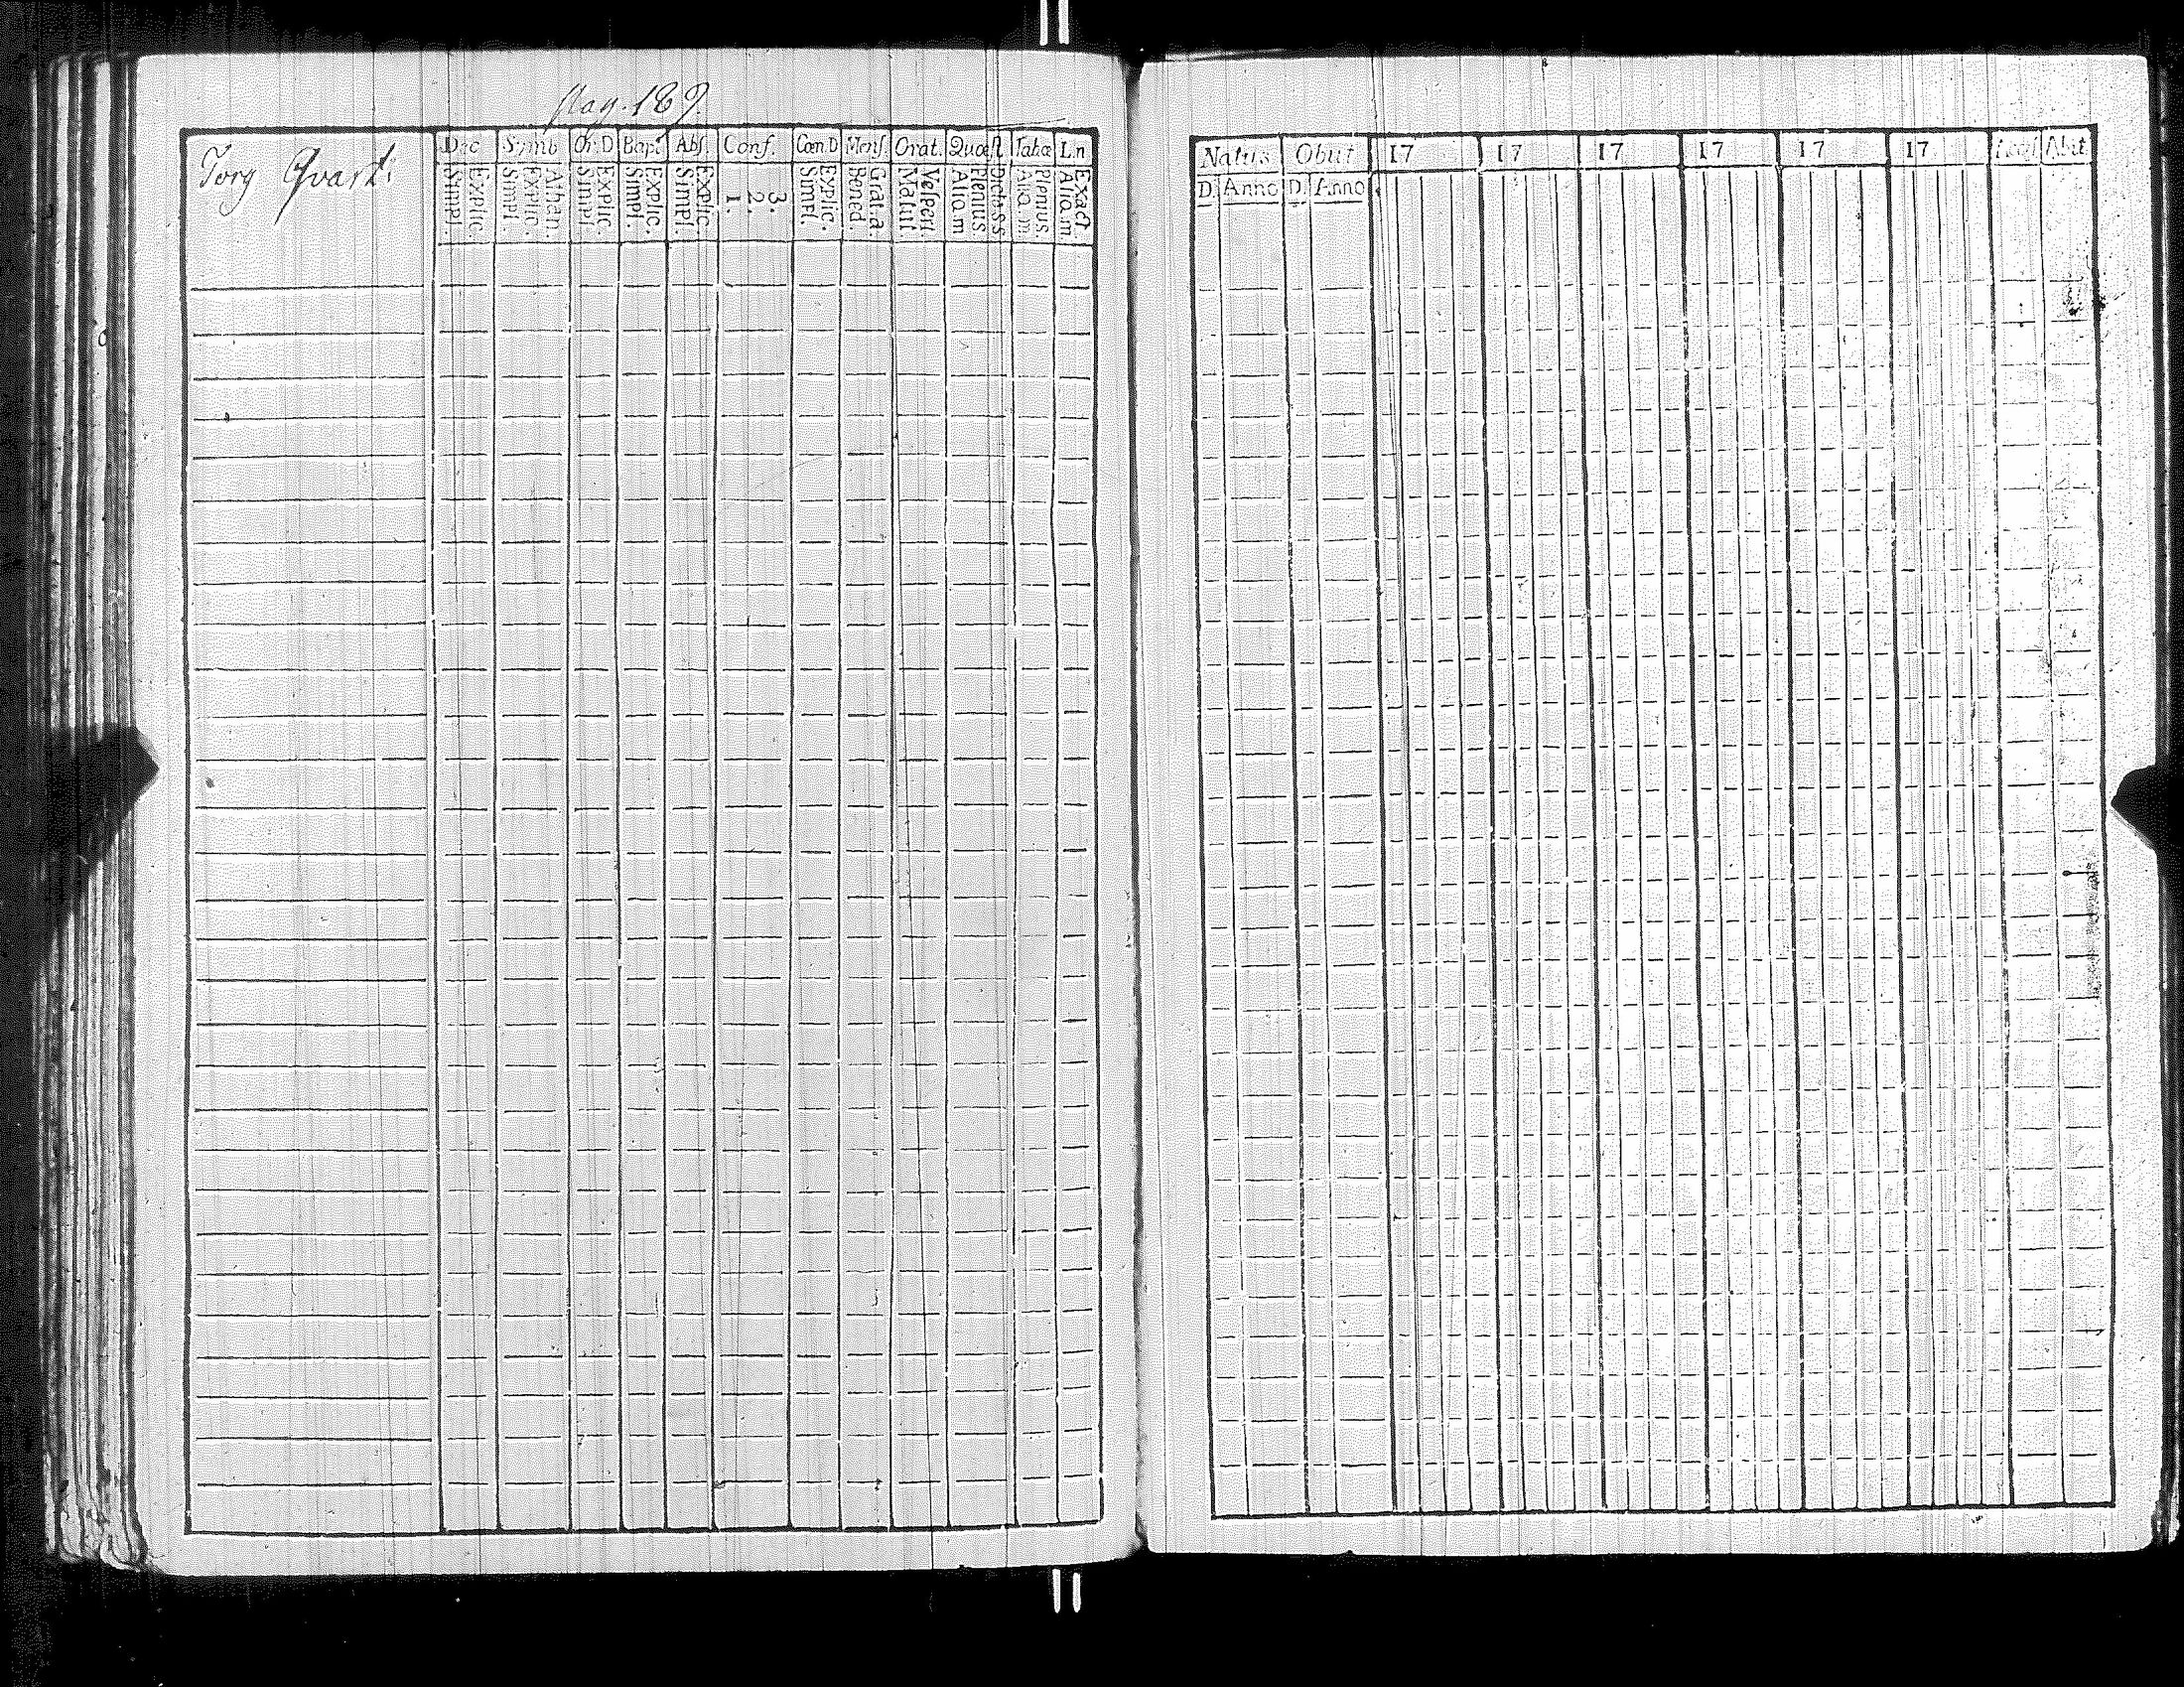 Pag. 189.
Torg Qvart:
Dec Symb Or. D Bapt Abs. Conf. Cœn D Mens. Orat. Quæst Tabœ L.n
Explic. Simpl.
Athan. Explic. Simpl.
Explic. Simpl.
Explic. Simpl.
Explic. Simpl.
3. 2. 1.
Explic. Simpl.
Grat. a. Bened.
Vespert. Matut
Dict. s s Plenius Aliq. m
Plenius. Aliq. m
Exact Aliq. m.
Natus Obiit 17 17 17 17 17 17 Abit
D. Anno D. Anno